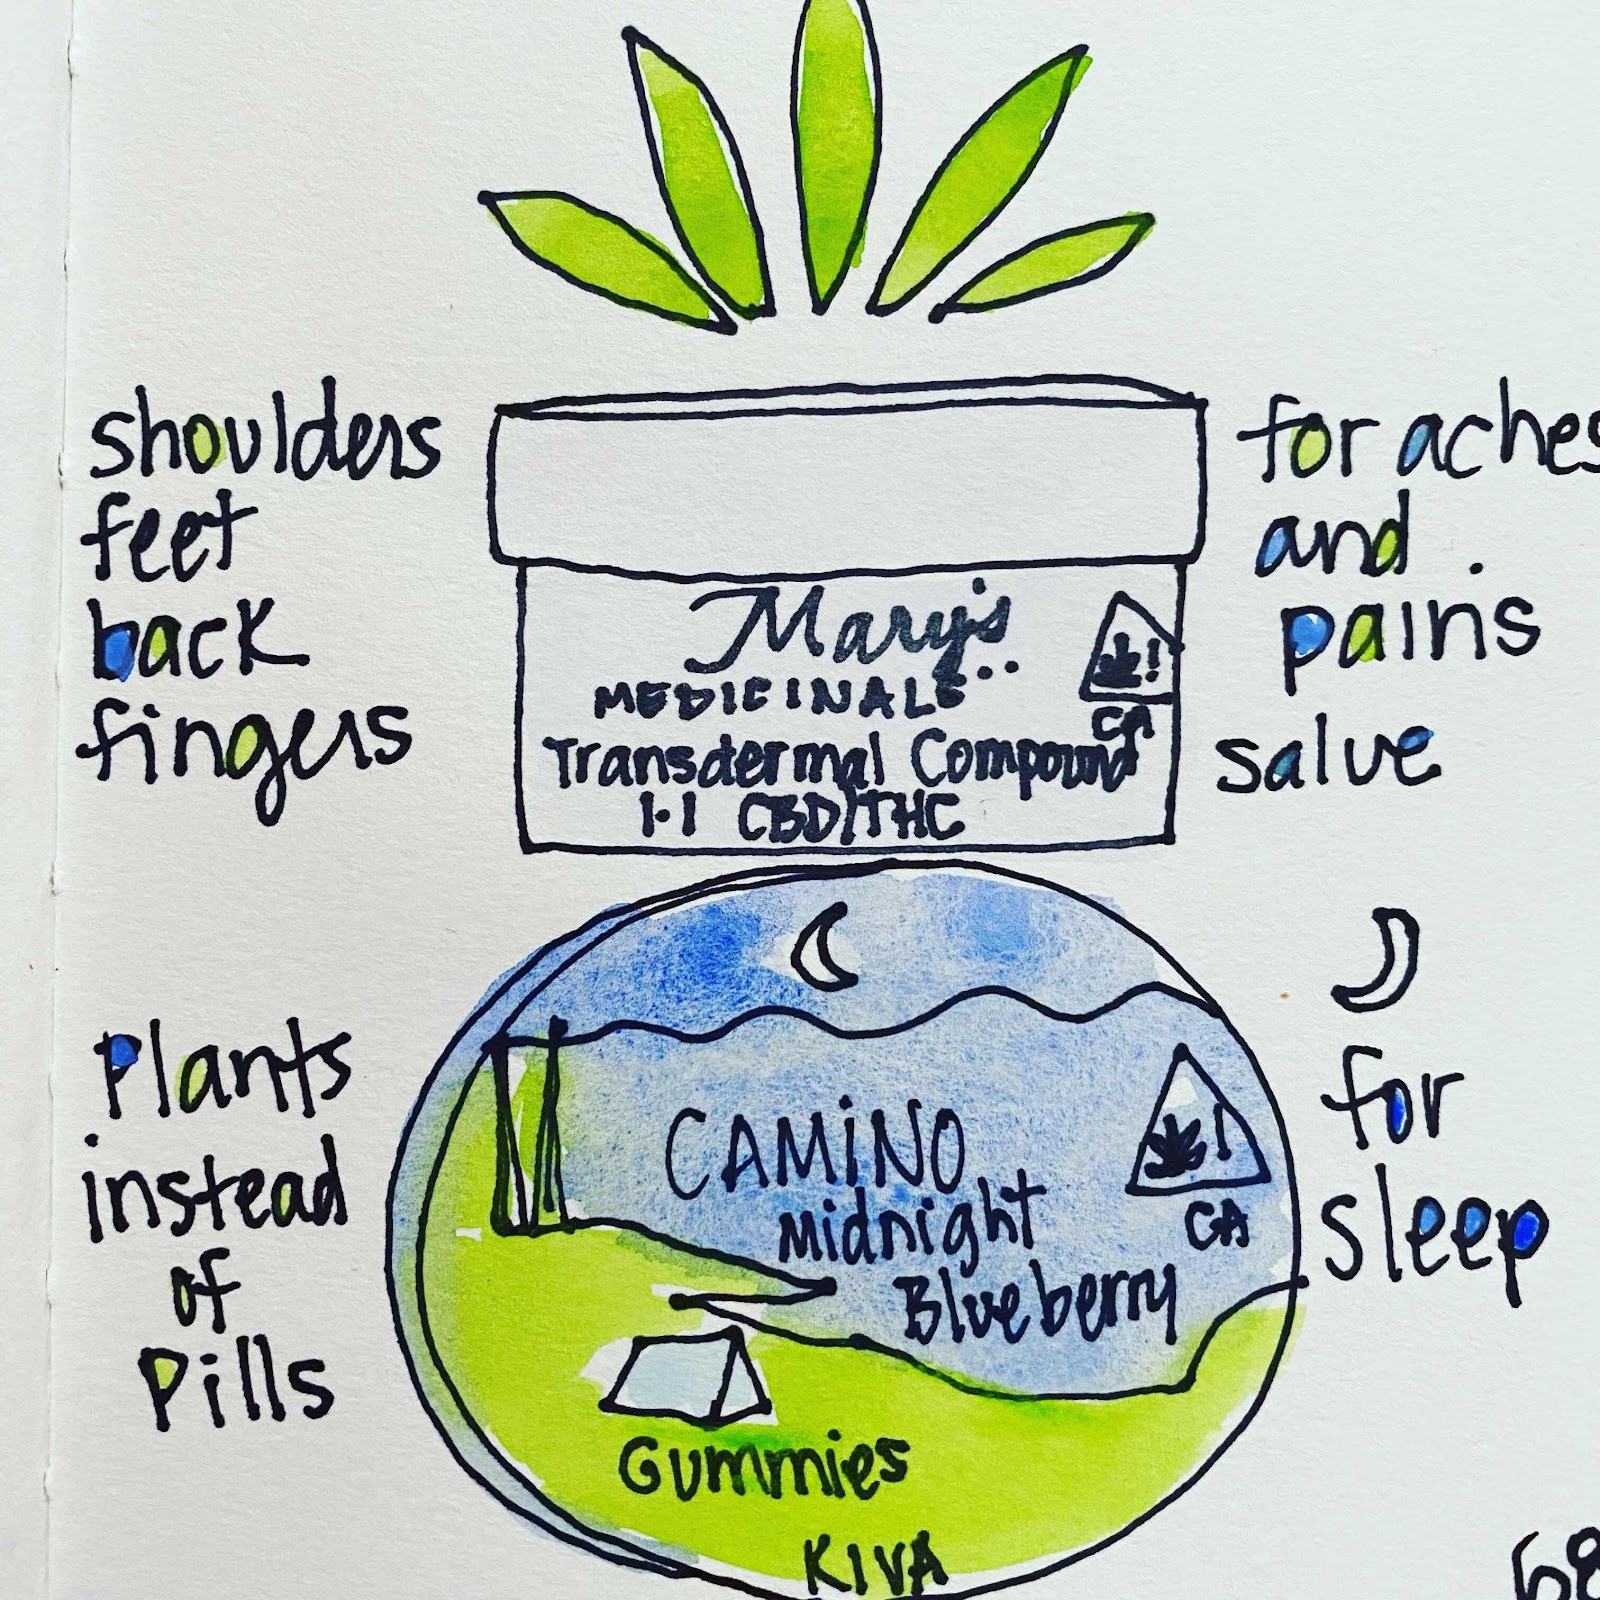 shoulders
feet
back
fingers
for aches
and
pains
salve
Mary's
MEDICINALS
Transdermal Compound
1:1 CBD/THC
!
CA
Plants
instead
of
Pills
CAMiNO
Midnight
Blueberry
!
CA
Gummies
KIVA
for
sleep
68